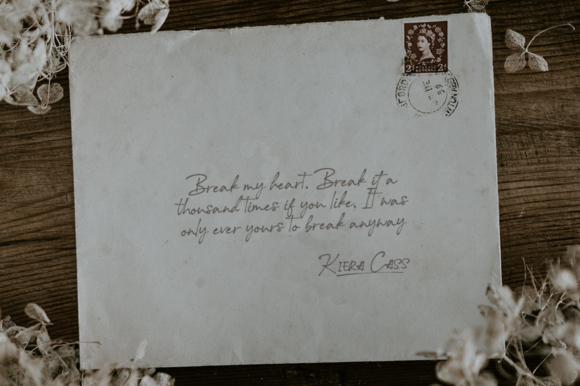 Break my heart. Break it a
thousand times if you like. It was
only ever yours to break anyway
KIERA CASS